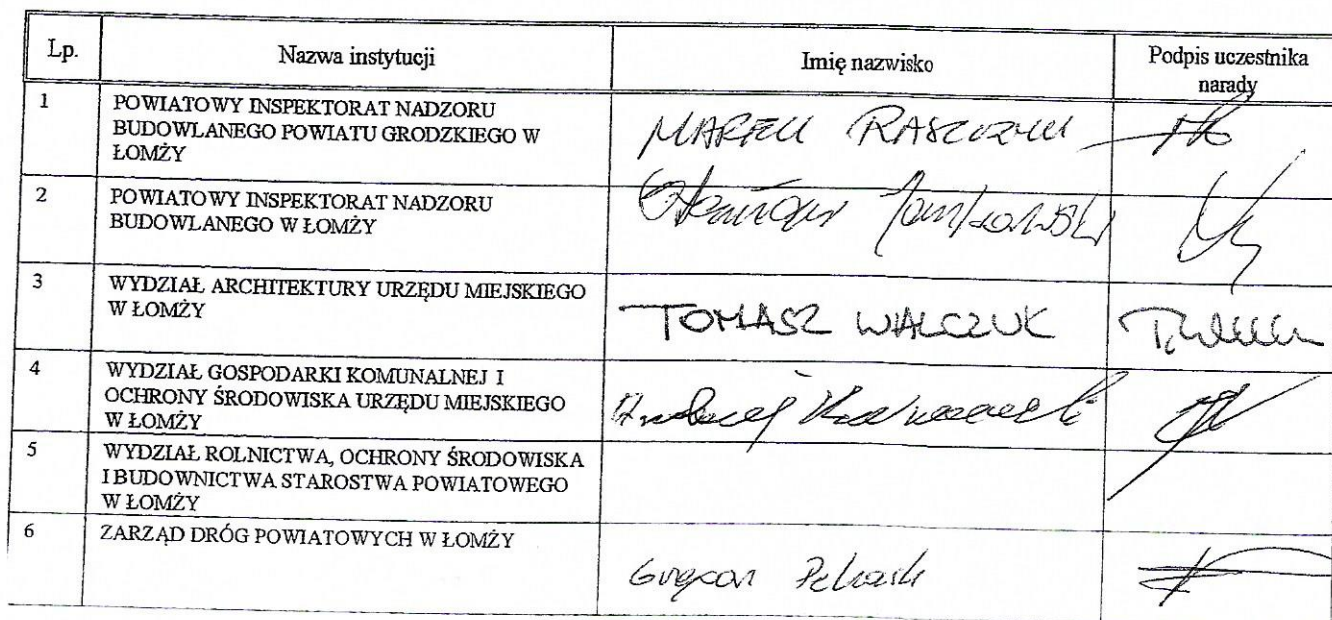 Lp. Nazwa instytucji Imię nazwisko Podpis uczestnika
narady
1 POWIATOWY INSPEKTORAT NADZORU
BUDOWLANEGO POWIATU GRODZKIEGO W
ŁOMŻY
MAREK
2 POWIATOWY INSPEKTORAT NADZORU
BUDOWLANEGO W ŁOMŻY
3 WYDZIAŁ ARCHITEKTURY URZĘDU MIEJSKIEGO
W ŁOMŻY
TOMASZ WALCZUK
4 WYDZIAŁ GOSPODARKI KOMUNALNEJ I
OCHRONY ŚRODOWISKA URZĘDU MIEJSKIEGO
W ŁOMŻY
Andrzej
5 WYDZIAŁ ROLNICTWA, OCHRONY ŚRODOWISKA
I BUDOWNICTWA STAROSTWA POWIATOWEGO
W ŁOMŻY
6 ZARZĄD DRÓG POWIATOWYCH W ŁOMŻY